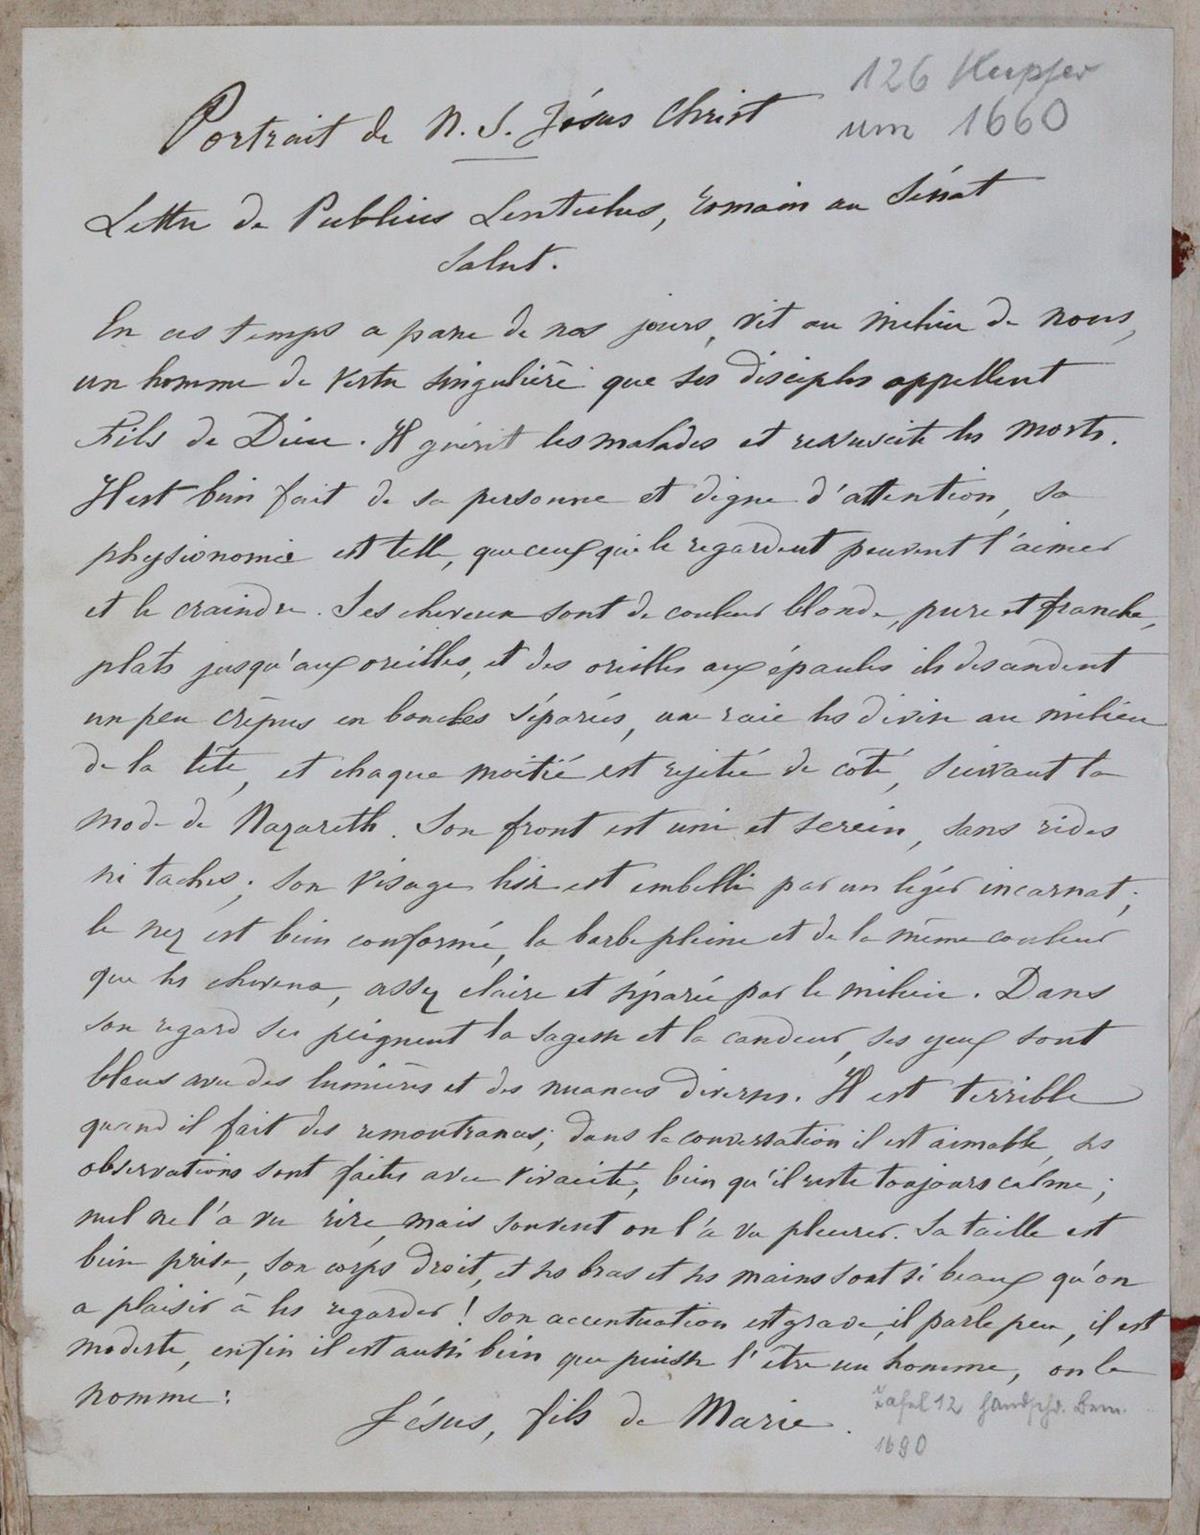 126 Kupfer
um 1660
Portrait de N. S. Jésus Christ
Lettre de Publius Lentulus, romain au Sénat
Salut.
En ces temps a parue de nos jours, vit au milieu de nous,
un homme de vertu singulière que ses disciples appellent
Fils de Dieu. Il guérit les malades et ressuscite les morts.
Il est bien fait de sa personne et digne d'attention, sa
physionomie est telle, que ceux qui le regardent peuvent l'aimer
et le craindre. Ses cheveux sont de couleur blonde, pure et franche,
plats jusqu'aux oreilles, et des oreilles aux épaules ils descendent
un peu crêpus en boucles séparées, une raie les divise au milieu
de la tête, et chaque moitié est rejetée de côté, suivant la
mode de Nazareth. Son front est uni et serein, sans rides
ni taches; son visage lisse est embelli par un léger incarnat;
le nez est bien conformé, la barbe pleine et de la même couleur
que les cheveux, assez claire et séparée par le milieu. Dans
son regard se peignent la sagesse et la candeur, ses yeux sont
bleus avec des lumières et des nuances diverses. Il est terrible
quand il fait des remontrances; dans la conversation il est aimable, ses
observations sont faites avec vivacité, bien qu'il reste toujours calme;
nul ne l'a vu rire, mais souvent on l'a vu pleurer. Sa taille est
bien prise, son corps droit, et ses bras et ses mains sont si beaux qu'on
a plaisir à les regarder! Son accentuation est grave, il parle peu, il est
modeste, enfin il est aussi bien que puisse l'être un homme, on le
nomme:
Jésus, fils de Marie.
Tafel 12 handschr. Bem.
1690